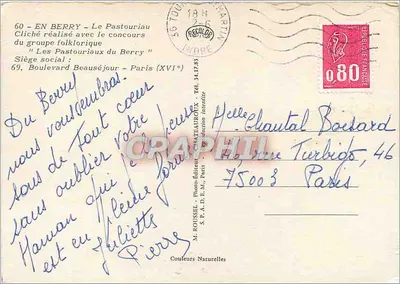 60 - EN BERRY - Le Pastouriau
Cliché réalisé avec le concours
du groupe folklorique
"Les Pastouriaux du Berry"
Siège social :
69, Boulevard Beauséjour - Paris (XVIe)
Du Berry
nous vous embras-
sons de tout coeur
sans oublier votre
Maman qui
est en pleine forme
Juliette
Pierre
M. ROUSSEL - Photo-Éditeur - CHATEAUROUX - Tél. 34-17-83
S. P. A. D. E. M., Paris - reproduction interdite
Couleurs Naturelles
18 H
2-6
INDRE
0,80
Melle Chantal Boisard
rue Turbigo, 46
75003 Paris
CPAPHIL